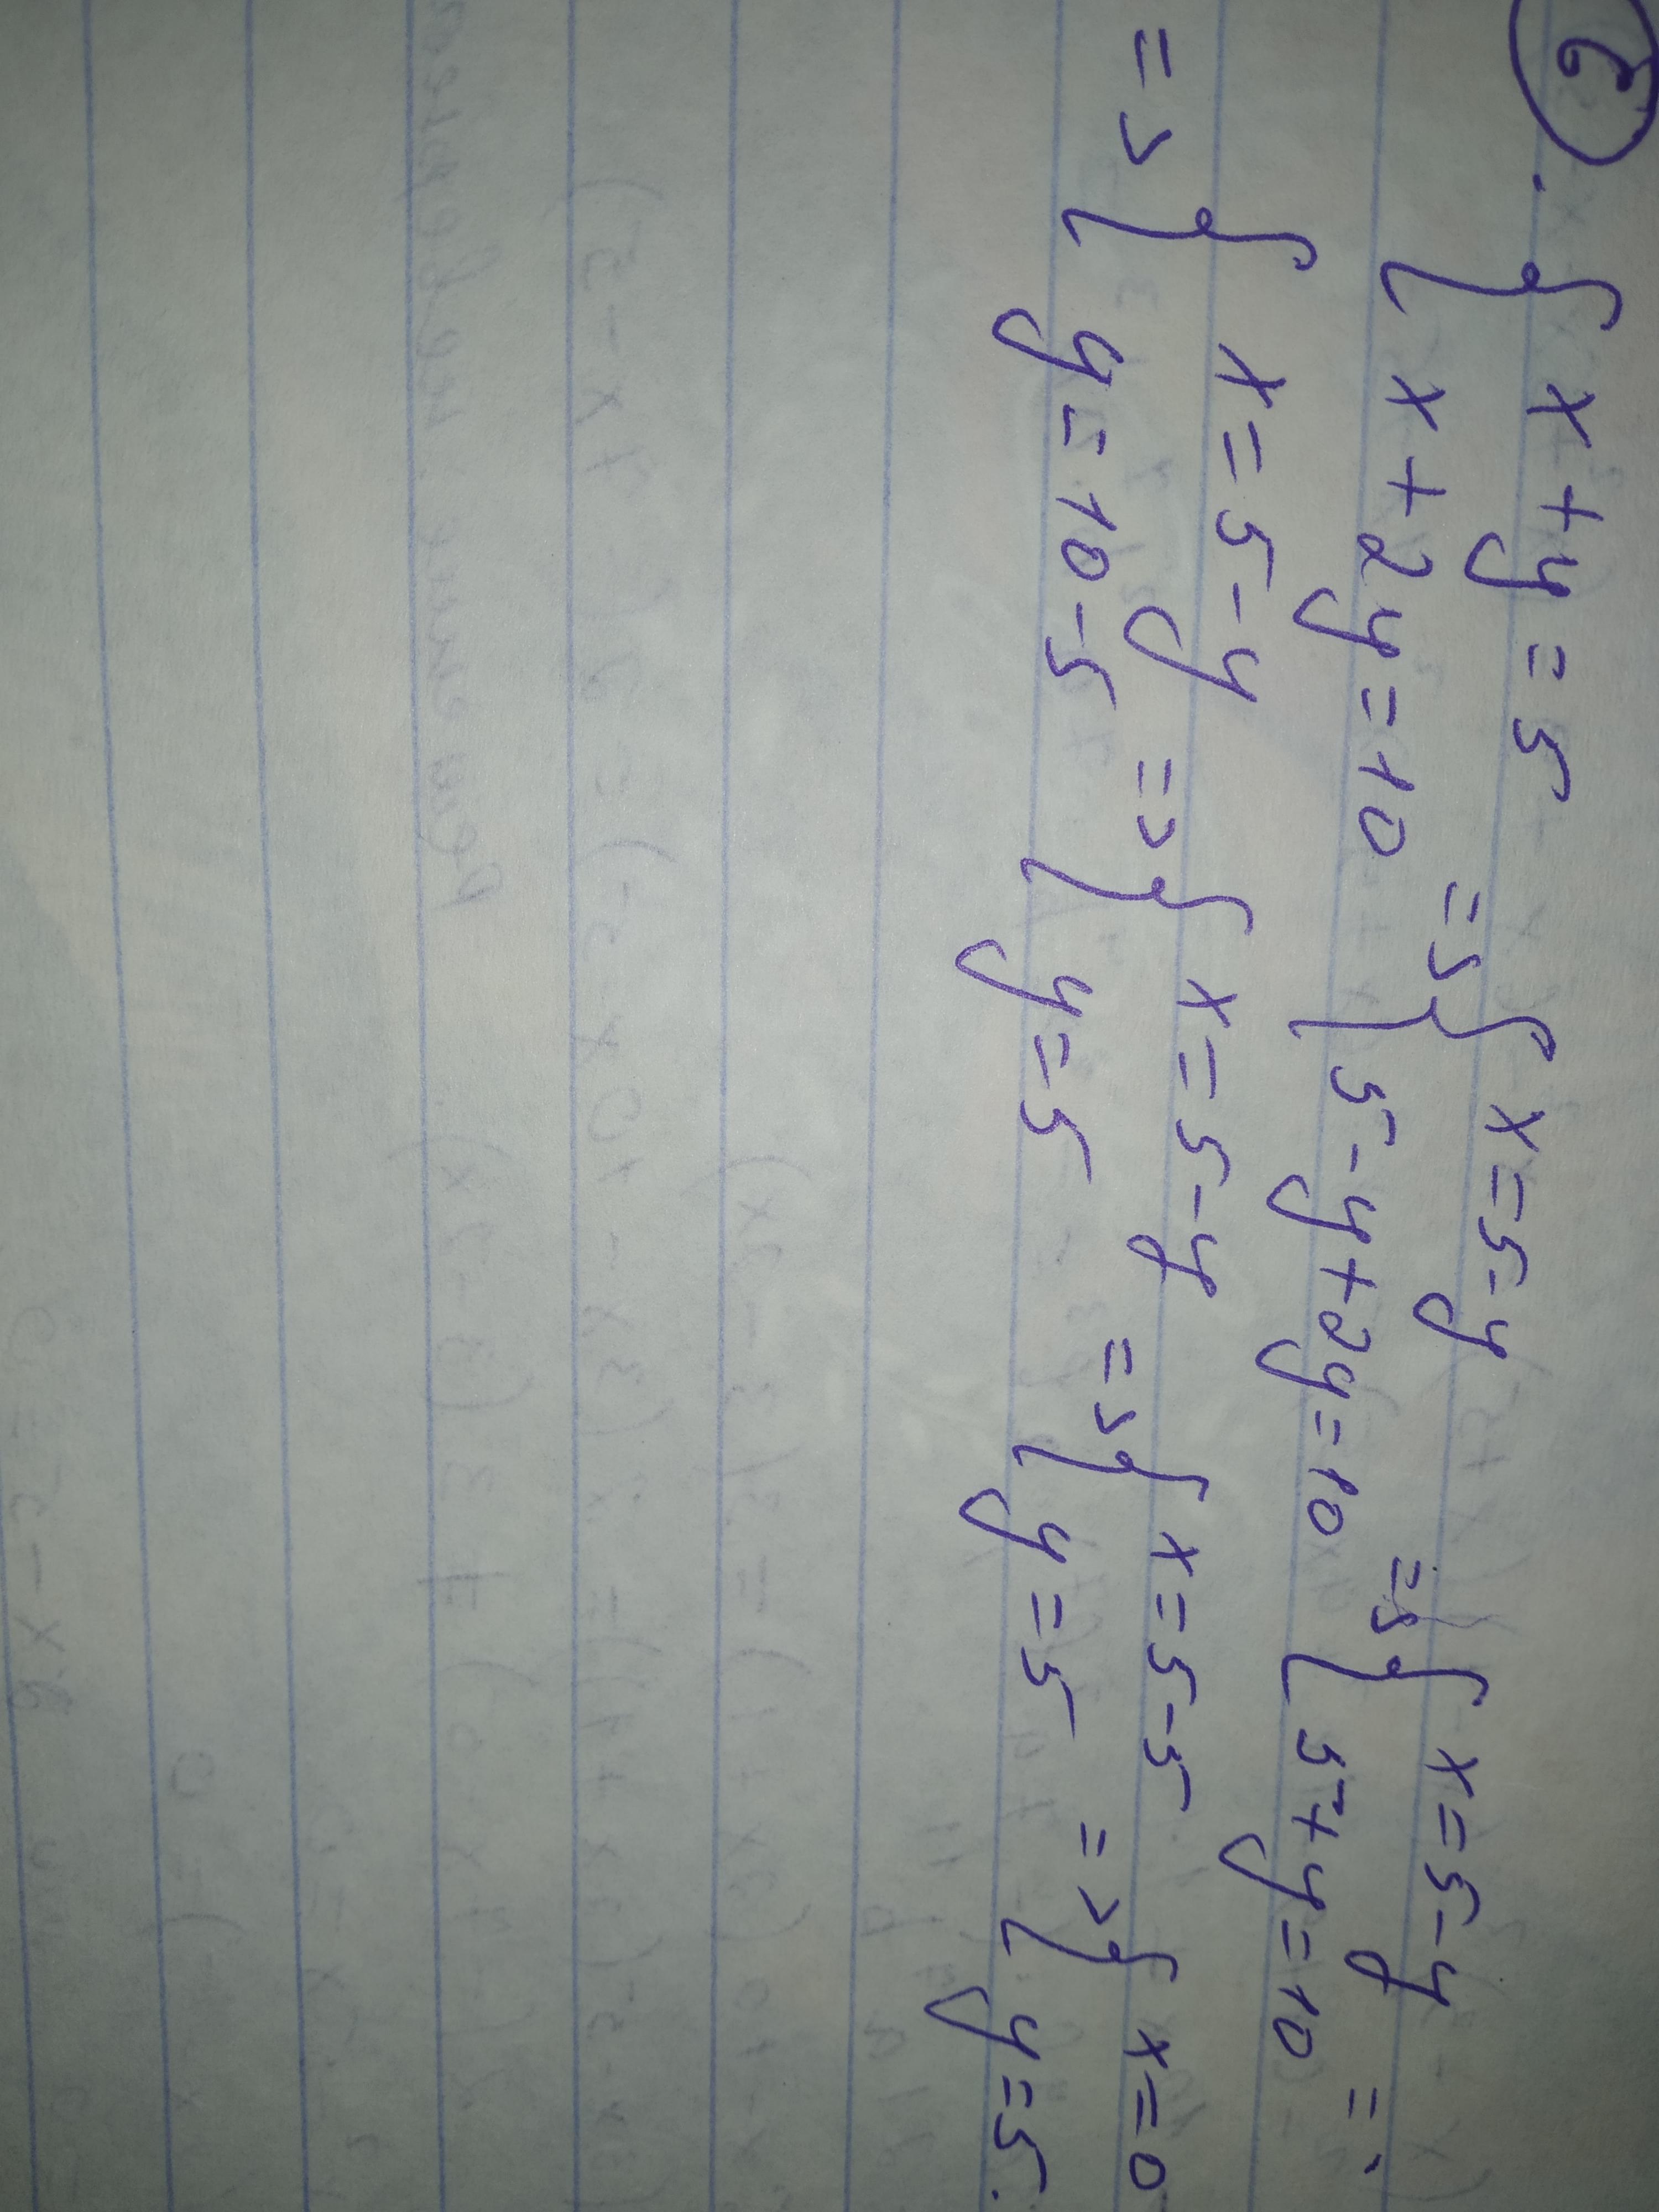 б. { x + y = 5
x + 2y = 10 => { x = 5 - y
5 - y + 2y = 10 => { x = 5 - y
5 + y = 10 =>
=> { x = 5 - y
y = 10 - 5 => { x = 5 - y
y = 5 => { x = 5 - 5
y = 5 => { x = 0
y = 5.